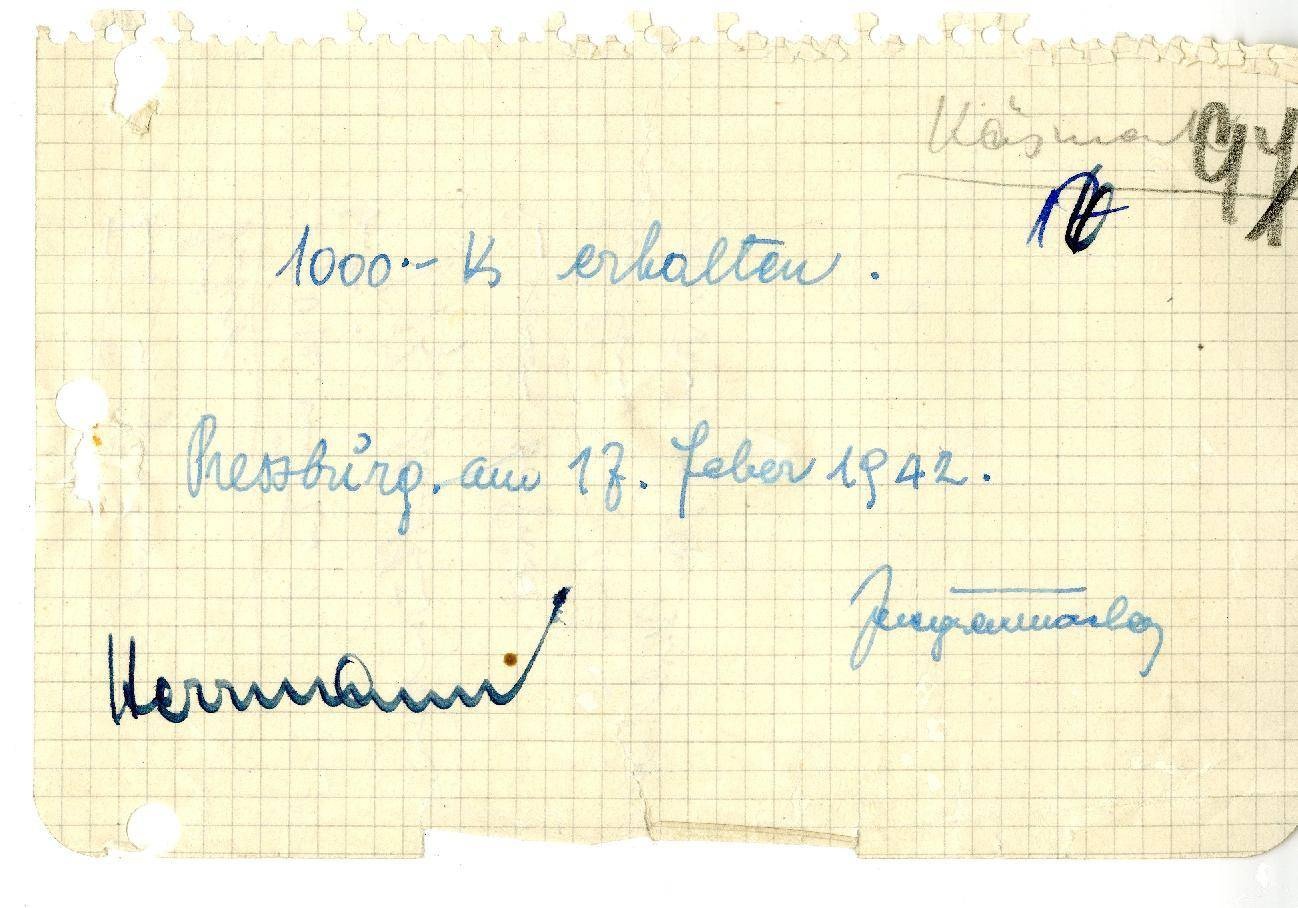 Käsmark 94/
1000.- Ks erhalten.
Pressburg. am 17. Feber 1942.
Herrmann